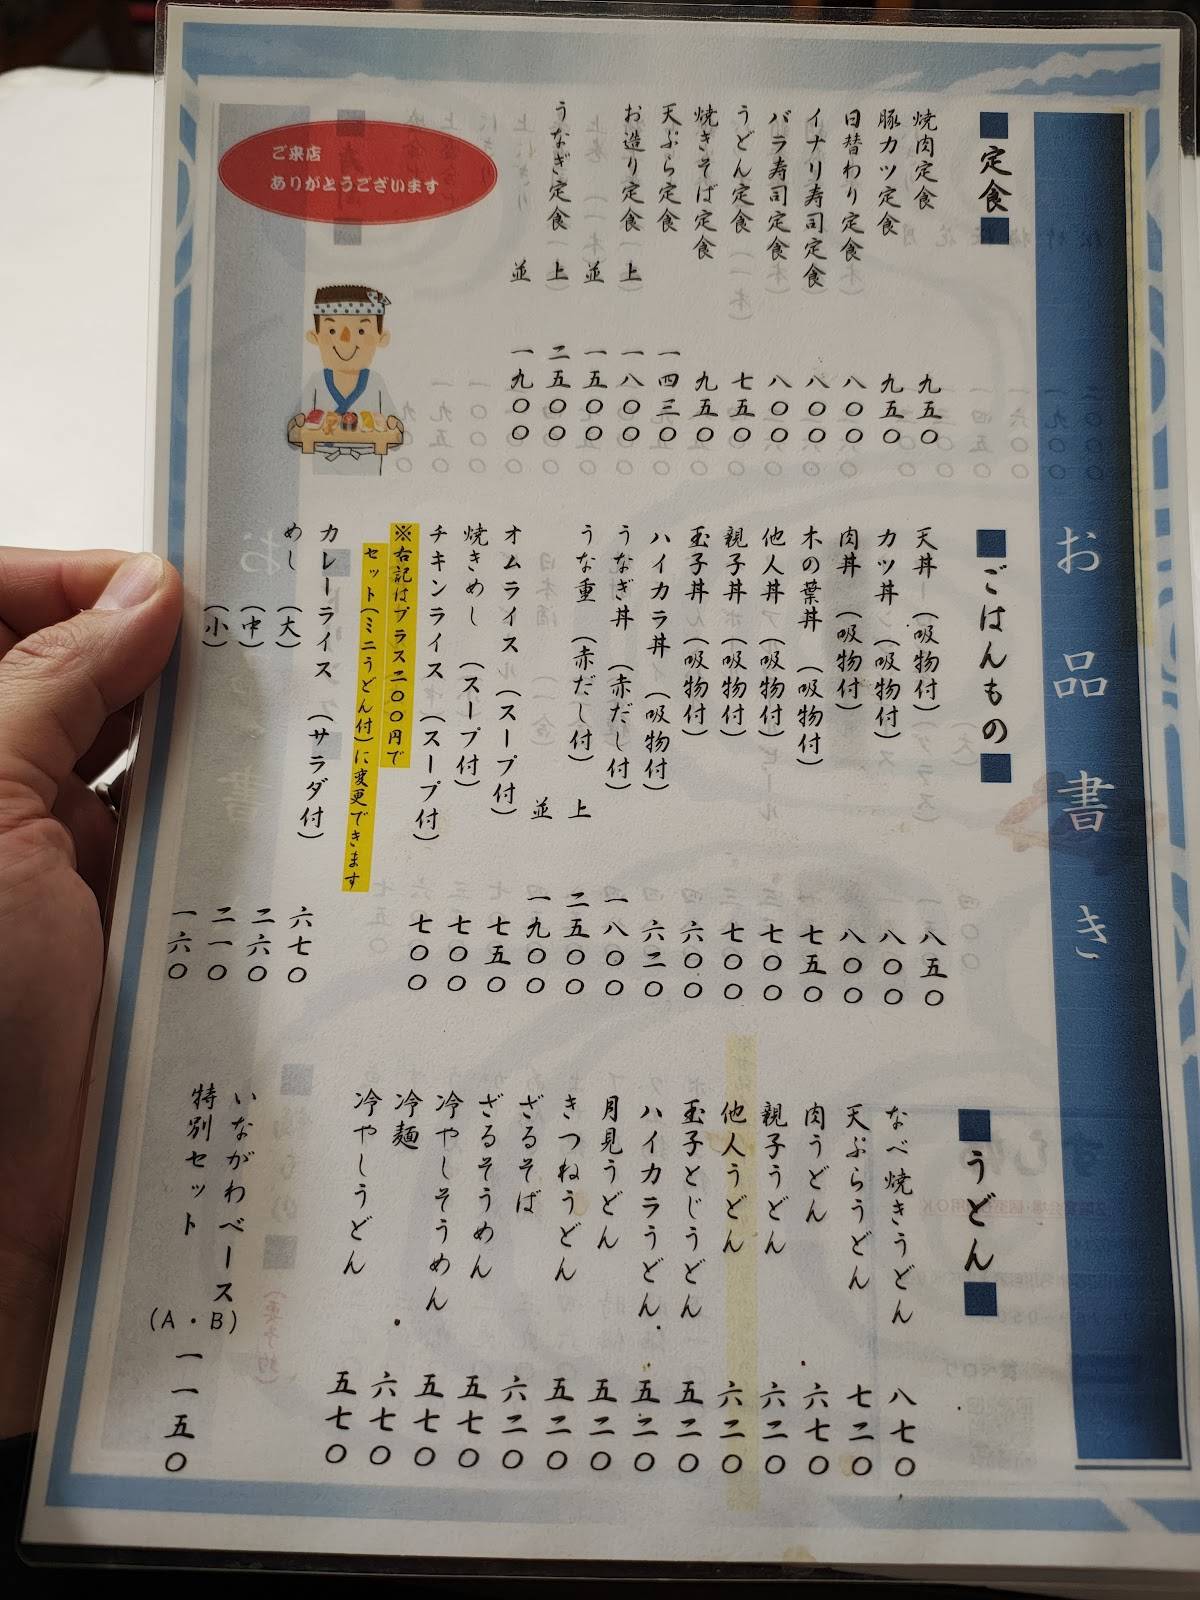 お品書き
■定食■
焼肉定食 九五〇
豚カツ定食 九五〇
日替わり定食 八〇〇
イナリ寿司定食 八〇〇
バラ寿司定食 八〇〇
うどん定食 七五〇
焼きそば定食 九五〇
天ぷら定食 一四三〇
お造り定食 上 一八〇〇
並 一五〇〇
うなぎ定食 上 二五〇〇
並 一九〇〇
ご来店
ありがとうございます
■ごはんもの■
天丼(吸物付) 八五〇
カツ丼(吸物付) 八〇〇
肉丼(吸物付) 八〇〇
木の葉丼(吸物付) 七五〇
他人丼(吸物付) 七〇〇
親子丼(吸物付) 七〇〇
玉子丼(吸物付) 六〇〇
ハイカラ丼(吸物付) 六二〇
うなぎ丼(赤だし付) 一八〇〇
うな重(赤だし付) 上 二五〇〇
並 一九〇〇
オムライス(スープ付) 七五〇
焼きめし(スープ付) 七〇〇
チキンライス(スープ付) 七〇〇
※右記はプラス二〇〇円で
セット(ミニうどん付)に変更できます
カレーライス(サラダ付) 六七〇
めし (大) 二六〇
(中) 二一〇
(小) 一六〇
■うどん■
なべ焼きうどん 八七〇
天ぷらうどん 七二〇
肉うどん 六七〇
親子うどん 六二〇
他人うどん 六二〇
玉子とじうどん 五二〇
ハイカラうどん 五二〇
月見うどん 五二〇
きつねうどん 五二〇
ざるそば 六二〇
ざるそうめん 五七〇
冷やしそうめん 五七〇
冷麺 六七〇
冷やしうどん 五七〇
いながわベース
特別セット
(A・B) 一一五〇